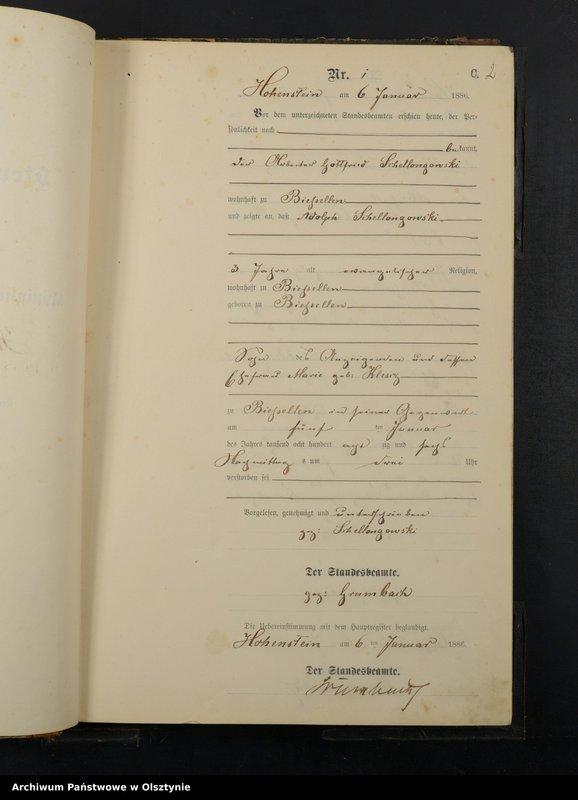 Nr. 1
C. 2
Hohenstein am 6 Januar 1886.
Vor dem unterzeichneten Standesbeamten erschien heute, der Per-
sönlichkeit nach
bekannt,
der Arbeiter Gottfried Schellongowski
wohnhaft zu Biessellen
und zeigte an, daß Adolph Schellongowski
3 Jahre alt evangelischer Religion,
wohnhaft zu Biessellen
geboren zu Biessellen
Sohn des Anzeigenden und dessen
Ehefrau Marie geb:
zu Biessellen in seiner Gegenwart
am fünf ten Januar
des Jahres tausend acht hundert acht zig und sechs
Nachmittag s um drei Uhr
verstorben sei
Vorgelesen, genehmigt und unterschrieben
gez: Schellongowski
Der Standesbeamte.
gez: Grumbach
Die Uebereinstimmung mit dem Hauptregister beglaubigt.
Hohenstein am 6 ten Januar 1886.
Der Standesbeamte.
Grumbach
Archiwum Państwowe w Olsztynie